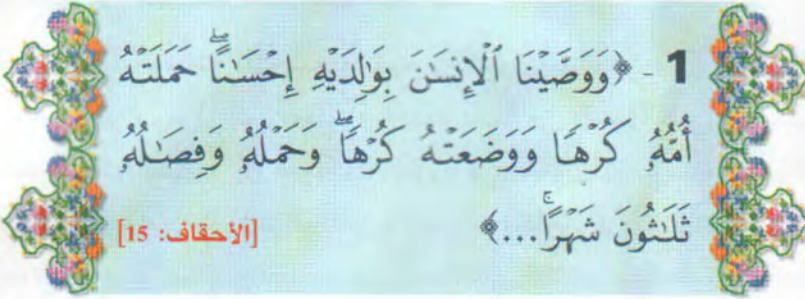 1 - ﴿وَوَصَّيْنَا ٱلْإِنسَٰنَ بِوَٰلِدَيْهِ إِحْسَٰنًاۖ حَمَلَتْهُ
أُمُّهُۥ كُرْهًا وَوَضَعَتْهُ كُرْهًاۖ وَحَمْلُهُۥ وَفِصَٰلُهُۥ
ثَلَٰثُونَ شَهْرًاۚ...﴾ [الأحقاف: 15]